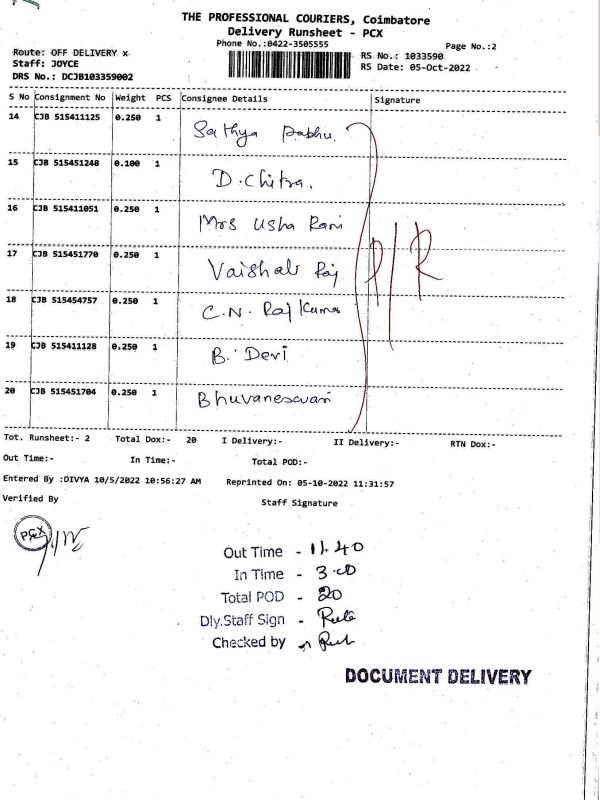 THE PROFESSIONAL COURIERS, Coimbatore
Delivery Runsheet - PCX
Phone No.:0422-3505555
Page No.:2
Route: OFF DELIVERY x
RS No.: 1033590
Staff: JOYCE
RS Date: 05-Oct-2022
DRS No.: DCJB103359002
S No Consignment No Weight PCS Consignee Details Signature
14 CJB 515411125 0.250 1 Sathya Prabhu.
15 CJB 515451248 0.100 1 D. Chitra.
16 CJB 515411051 0.250 1 Mrs Usha Rani
17 CJB 515451770 0.250 1 Vaishali Raj
18 CJB 515454757 0.250 1 C.N. Raj Kumar
19 CJB 515411128 0.250 1 B. Devi
20 CJB 515451704 0.250 1 Bhuvaneswari
P/R
Tot. Runsheet:- 2 Total Dox:- 20 I Delivery:- II Delivery:- RTN Dox:-
Out Time:- In Time:- Total POD:-
Entered By :DIVYA 10/5/2022 10:56:27 AM Reprinted On: 05-10-2022 11:31:57
Verified By Staff Signature
PCX
Out Time - 11.40
In Time - 3.00
Total POD - 20
Dly.Staff Sign -
Checked by
DOCUMENT DELIVERY